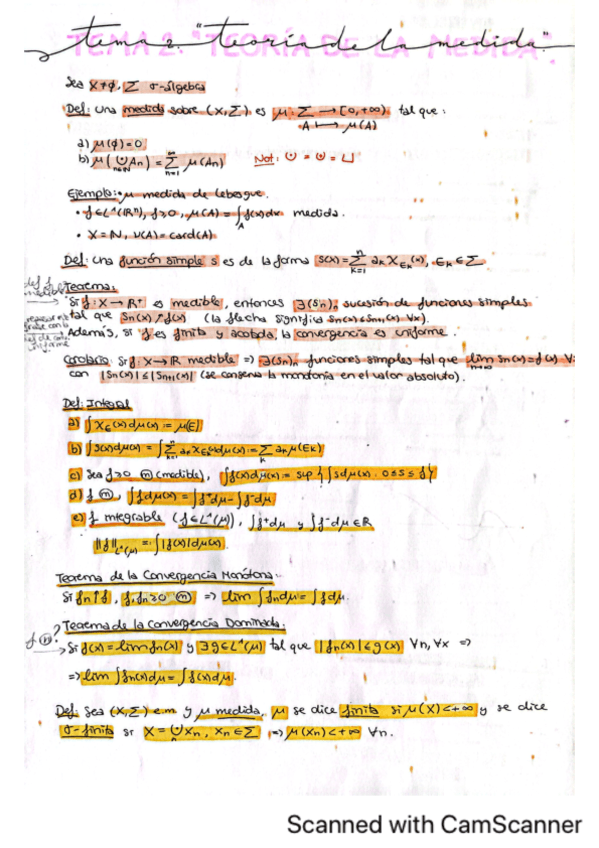 tema 2. "teoría de la medida".
TEMA 2. "TEORÍA DE LA MEDIDA".
Sea X≠∅, Σ σ-álgebra
Def: Una medida sobre (X,Σ) es μ: Σ → [0,+∞) tal que:
A ↦ μ(A)
a) μ(∅)=0
b) μ(⨃_{n∈ℕ} An) = Σ_{n=1}^∞ μ(An) Not: ⨃ = ⊍ = ⊔
Ejemplo: • μ medida de Lebesgue.
• f∈L¹(ℝⁿ), f≥0, μ(A)=∫_A f(x)dx medida.
• X=ℕ, ν(A)=card(A)
Def: Una función simple s es de la forma s(x)=Σ_{k=1}^n a_k χ_{E_k}(x), E_k∈Σ
Teorema:
Si f: X→ℝ⁺ es medible, entonces ∃(Sn)n sucesión de funciones simples
tal que Sn(x)↗f(x) (la flecha significa Sn(x)≤Sn+1(x) ∀x).
Además, si f es finita y acotada, la convergencia es uniforme.
Corolario: Si f: X→ℝ medible ⇒ ∃(Sn)n funciones simples tal que lim_{n→∞} Sn(x)=f(x) ∀
con |Sn(x)|≤|Sn+1(x)| (se conserva la monotonía en el valor absoluto).
Def: Integral
a) ∫χ_E(x)dμ(x):=μ(E)
b) ∫s(x)dμ(x)=∫Σ_{k=1}^n a_k χ_{E_k}(x)dμ(x):=Σ_k a_k μ(E_k)
c) Sea f≥0 ⓜ (medible), ∫f(x)dμ(x):= sup{∫s dμ : 0≤s≤f}
d) f ⓜ, ∫f dμ(x)=∫f⁺dμ-∫f⁻dμ
e) f integrable (f∈L¹(μ)), ∫f⁺dμ y ∫f⁻dμ∈ℝ
‖f‖_{L¹(μ)} =: ∫|f(x)|dμ(x)
Teorema de la Convergencia Monótona:
Si fn↑f, f,fn≥0 ⓜ ⇒ lim ∫fn dμ=∫f dμ.
Teorema de la Convergencia Dominada:
f ⓜ?
Si f(x)=lim fn(x) y ∃g∈L¹(μ) tal que |fn(x)|≤g(x) ∀n,∀x ⇒
⇒ lim ∫fn(x)dμ=∫f(x)dμ.
Def: Sea (X,Σ) e.m y μ medida, μ se dice finita si μ(X)<+∞ y se dice
σ-finita si X=⋃_n Xn, Xn∈Σ ⇒ μ(Xn)<+∞ ∀n.
Scanned with CamScanner